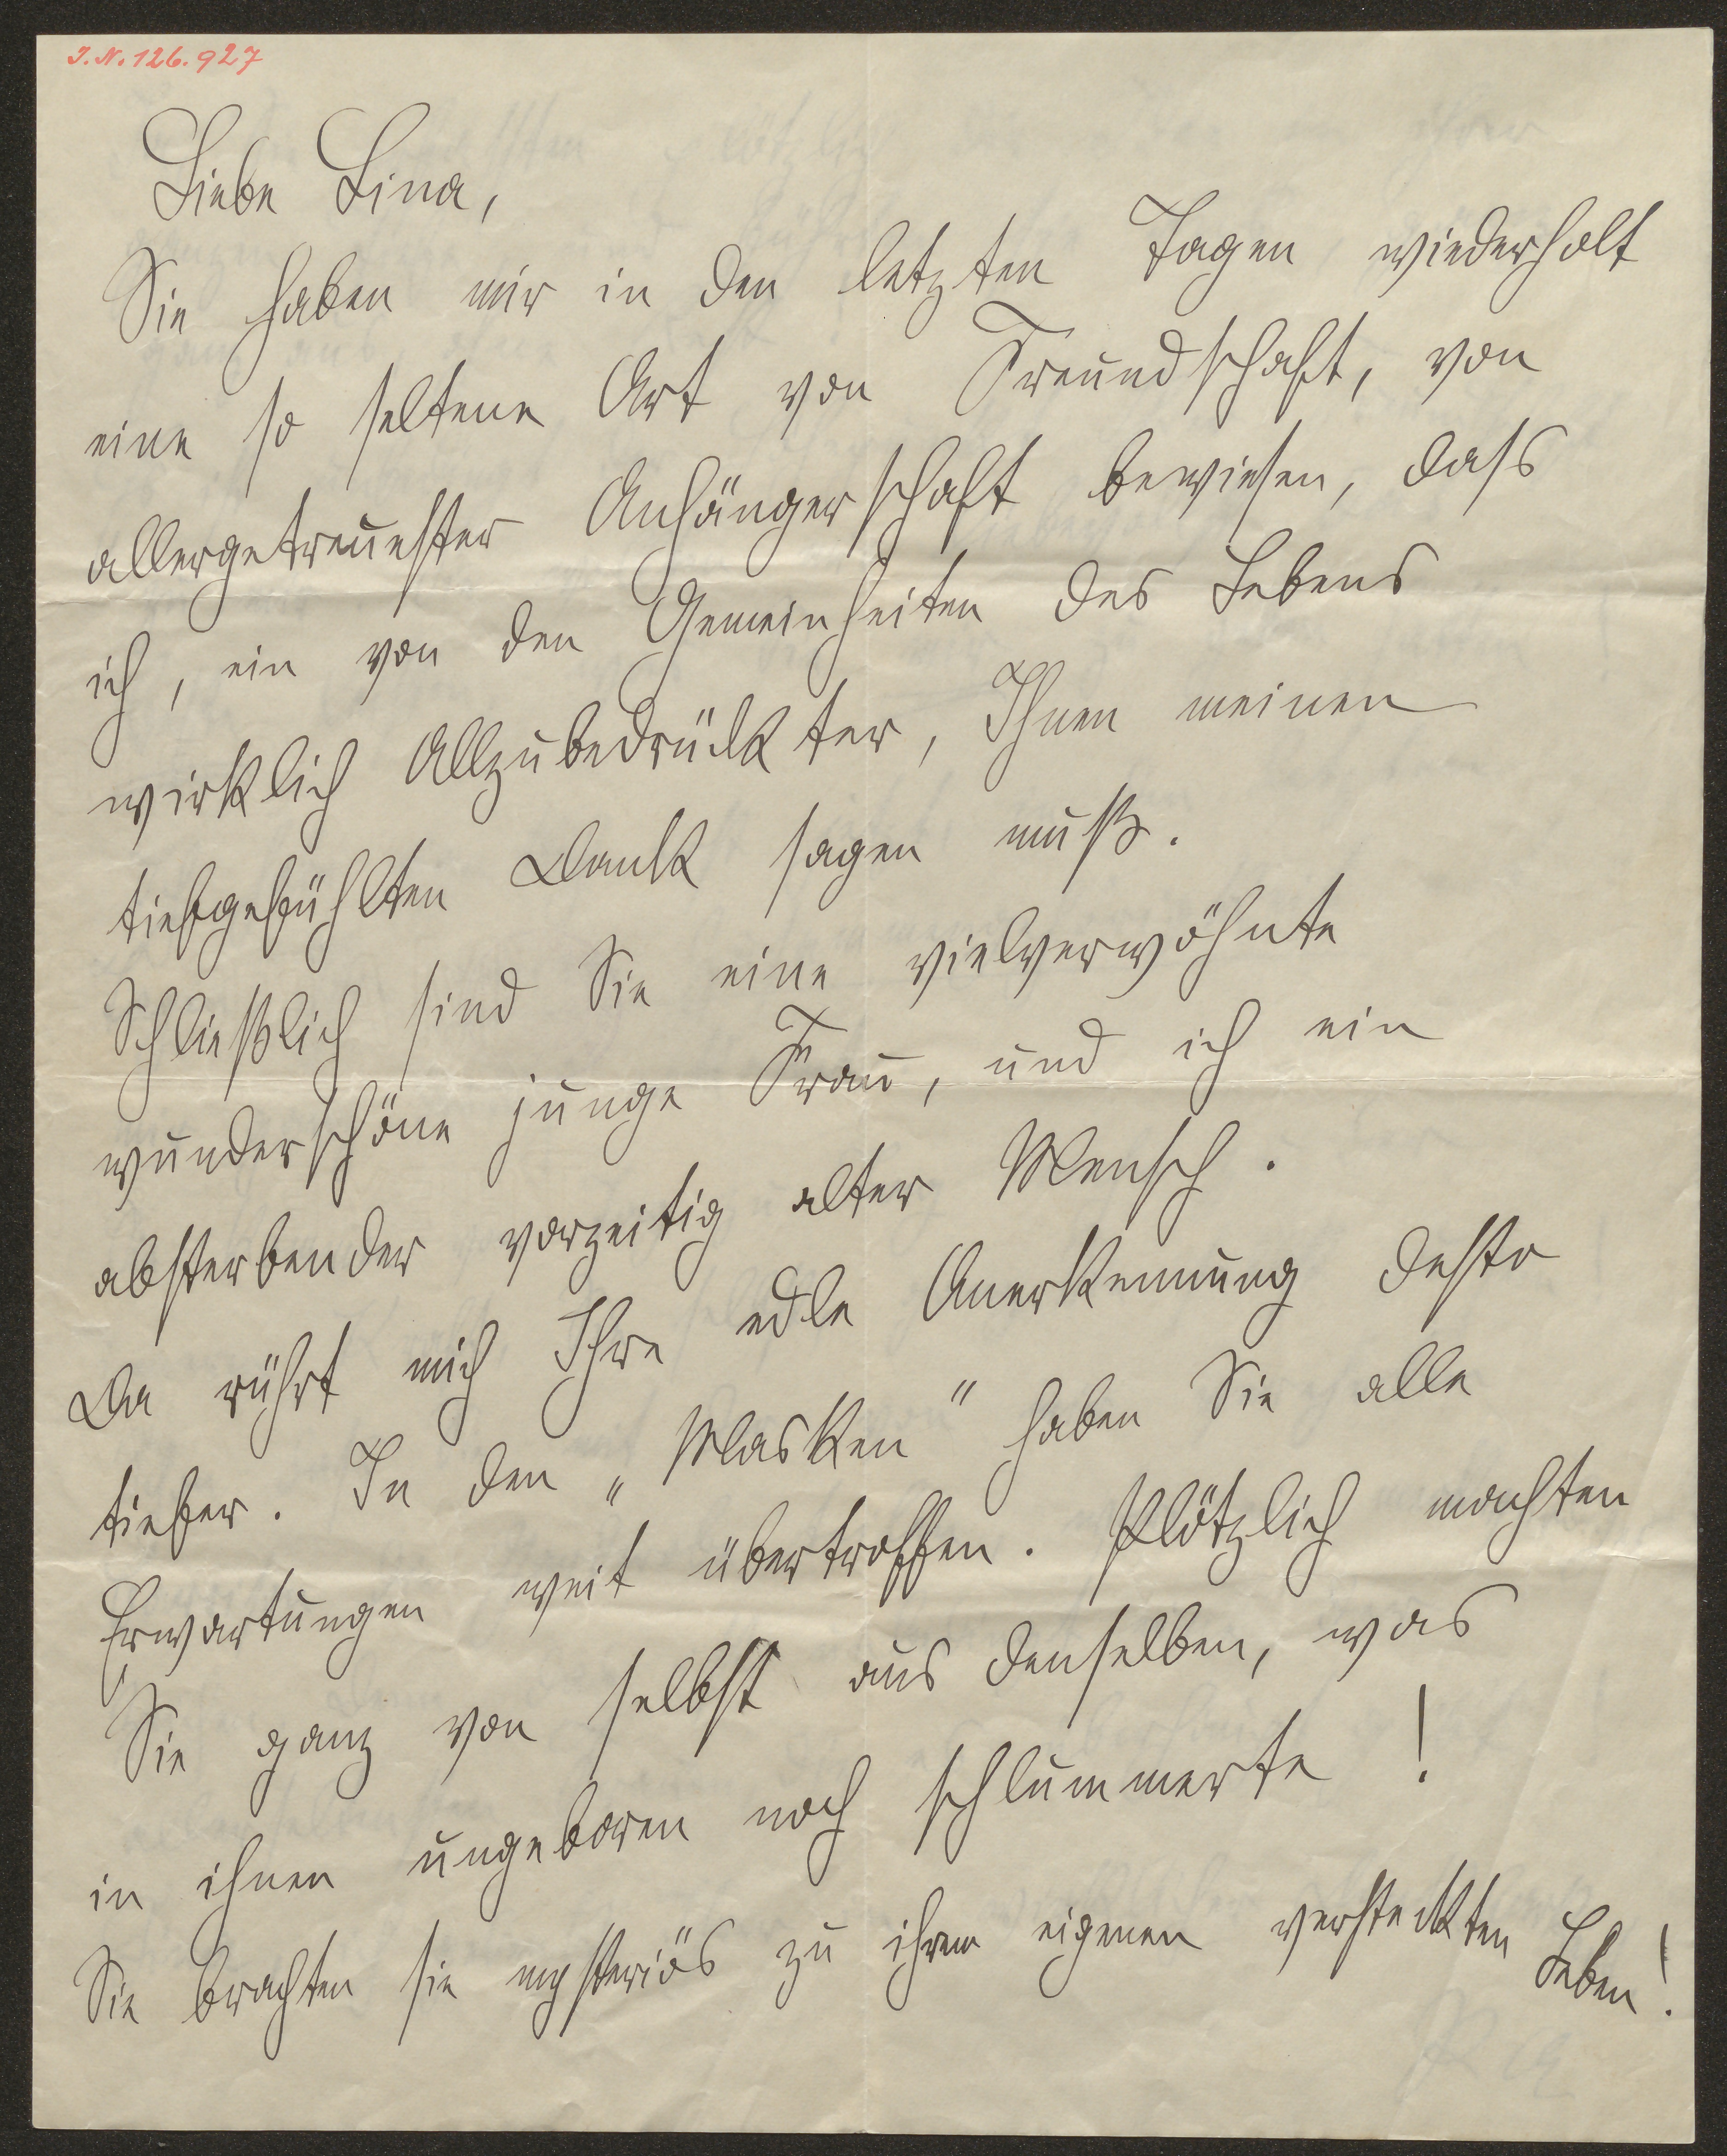 I.N. 126.927
Liebe Lina,
Sie haben mir in den letzten Tagen wiederholt
eine so seltene Art von Freundschaft, von
allergetreuester Anhängerschaft bewiesen, dass
ich, ein von den Gemeinheiten des Lebens
wirklich Allzubedrückter, Ihnen meinen
tiefgefühlten Dank sagen muß.
Schließlich sind Sie eine vielverwöhnte
wunderschöne junge Frau, und ich ein
absterbender vorzeitig alter Mensch.
Da rührt mich Ihre edle Anerkennung desto
tiefer. In den „Masken" haben Sie alle
Erwartungen weit übertroffen. Plötzlich machten
Sie ganz von selbst aus denselben, was
in ihnen ungeboren noch schlummerte!
Sie brachten sie mysteriös zu ihrem eigenen versteckten Leben!